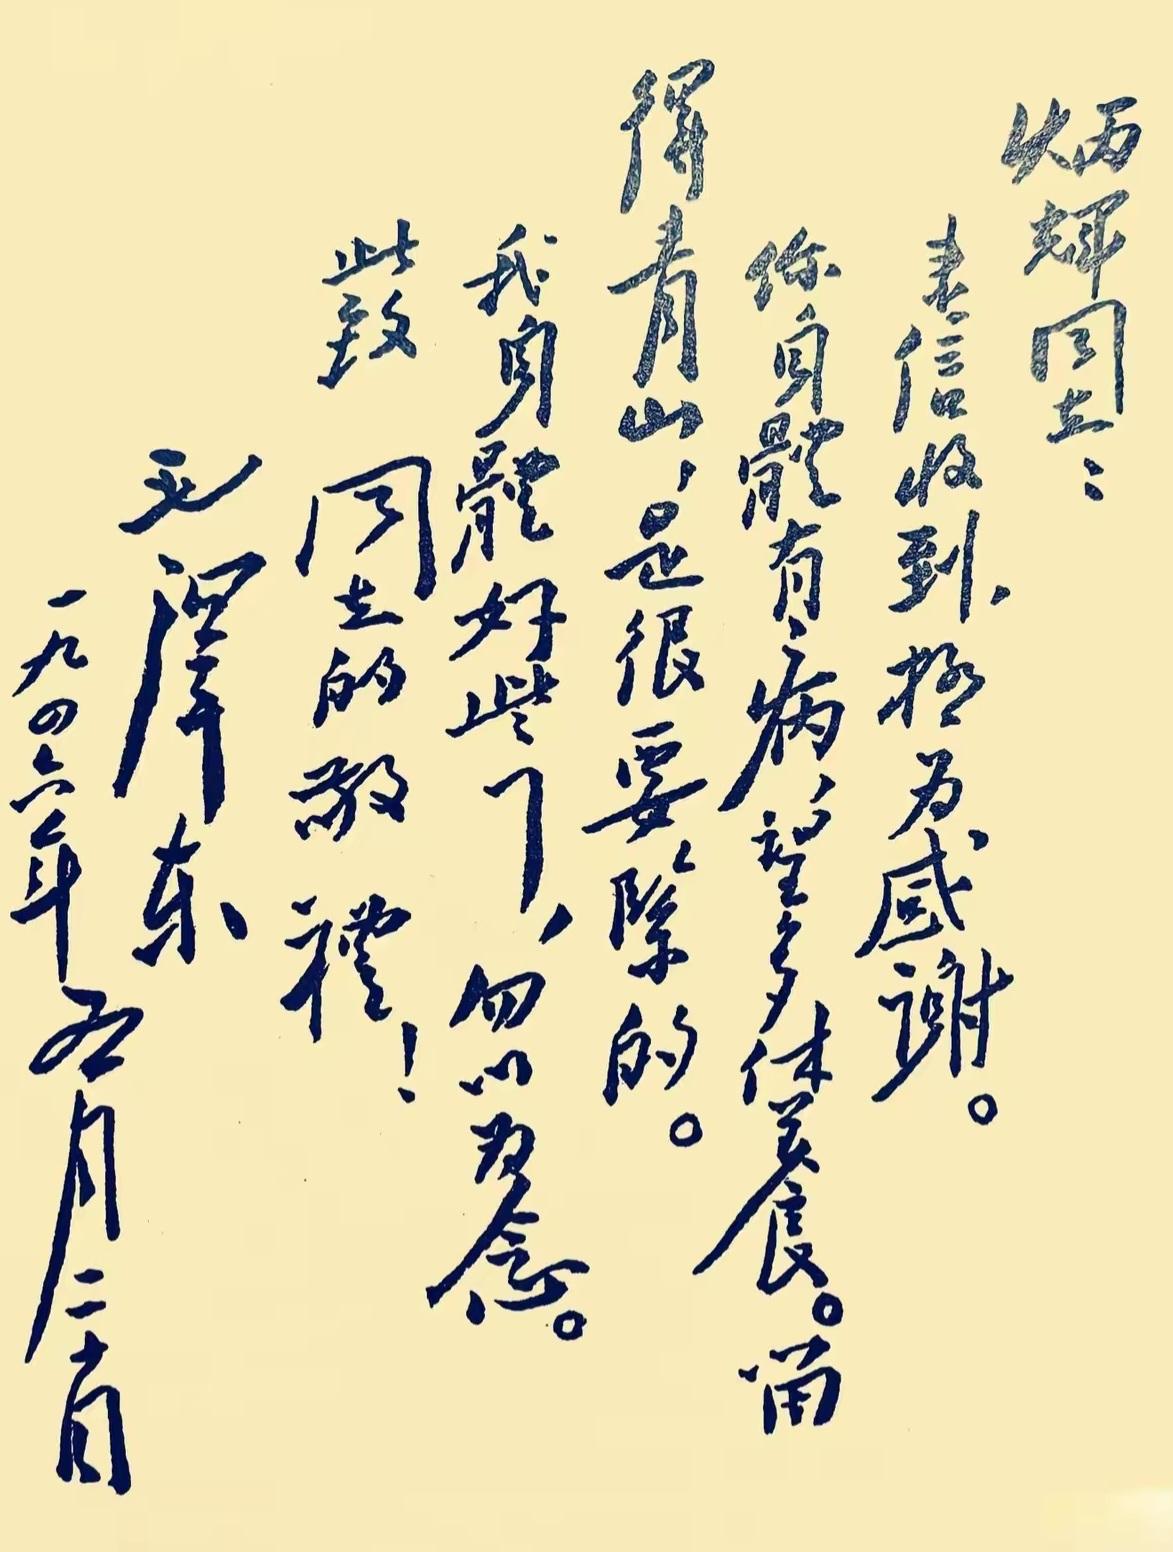 炳辉同志：
来信收到，极为感谢。
你身體有病，望多休养。留
得青山，是很要緊的。
我身體好些了，勿以为念。
此致
同志的敬禮！
毛泽东
一九四六年五月二十日